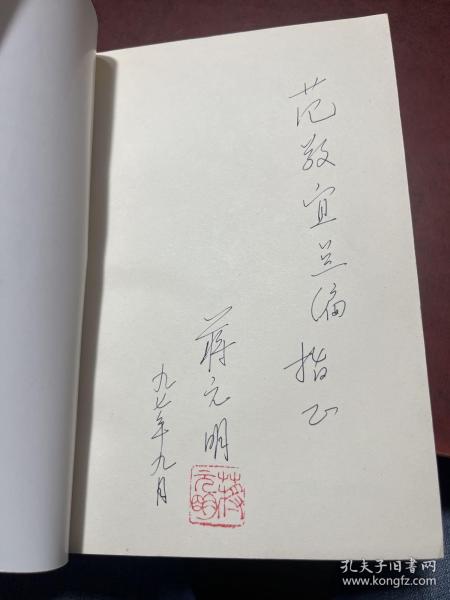 范敬宜总编指正
蒋元明
九七年九月
蒋元明
孔夫子旧书网
www.kongfz.com